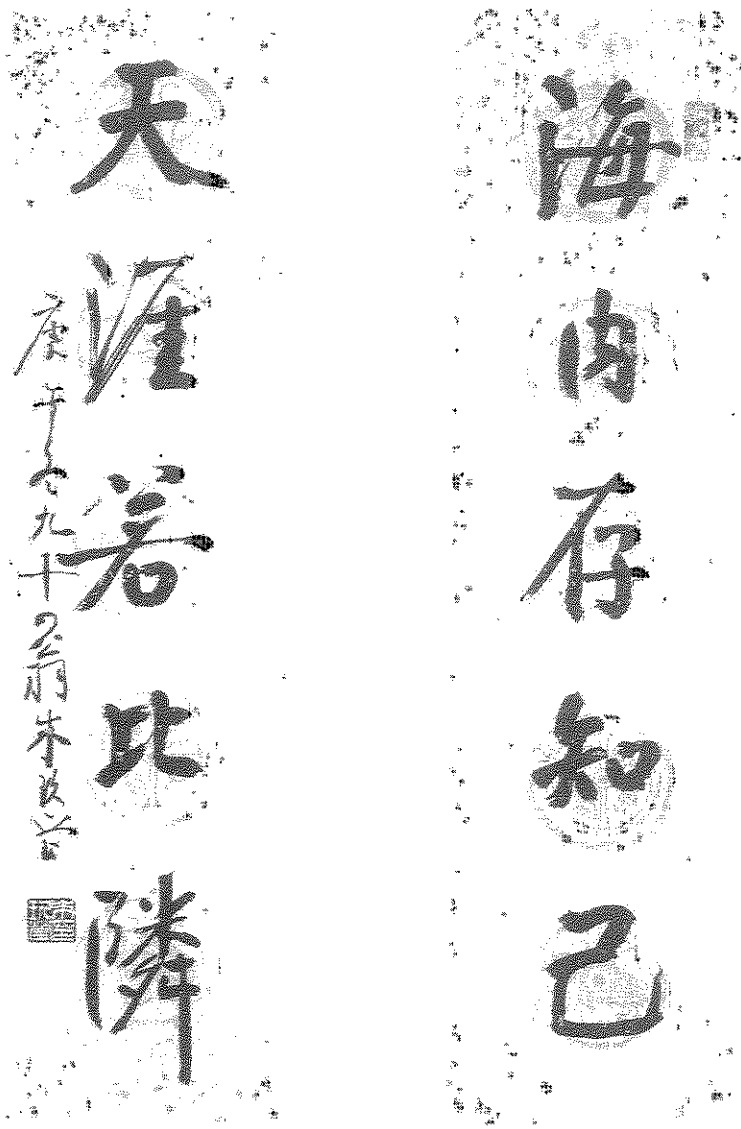 海内存知己
天涯若比隣
庚午 九十 翁朱玖瑩